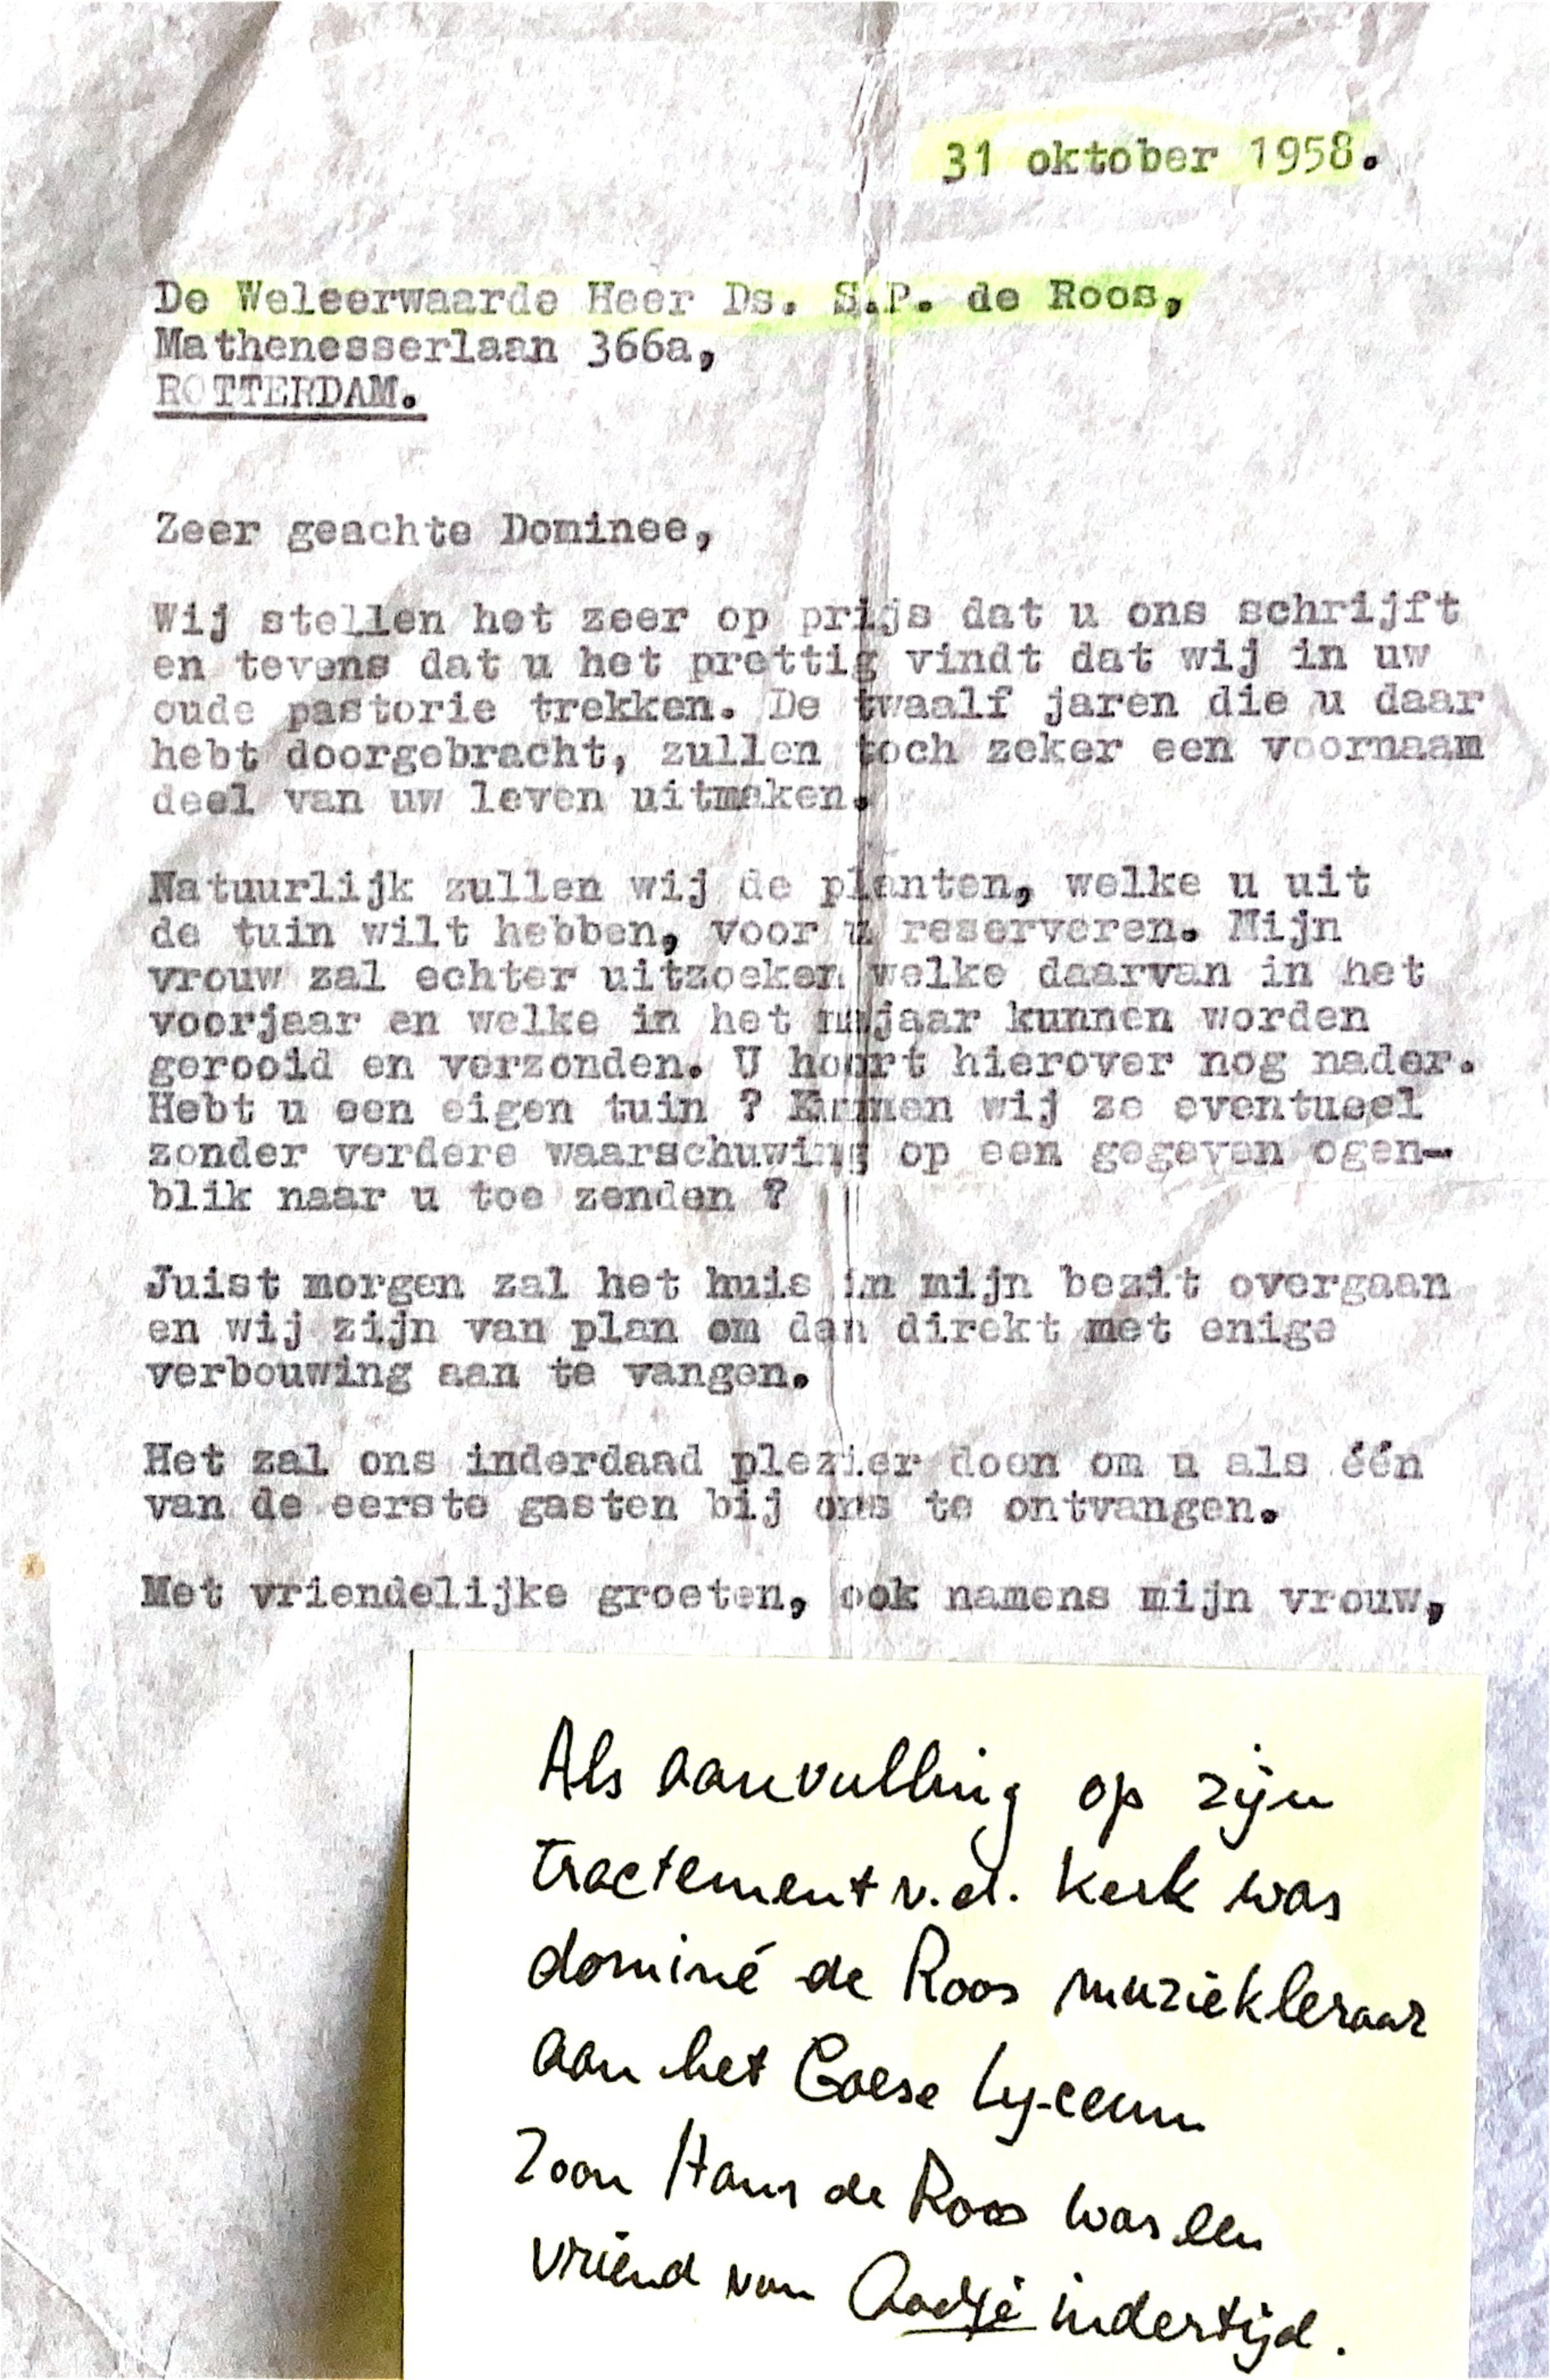 31 oktober 1958.
De Weleerwaarde Heer Ds. S.P. de Roos,
Mathenesserlaan 366a,
ROTTERDAM.
Zeer geachte Dominee,
Wij stellen het zeer op prijs dat u ons schrijft
en tevens dat u het prettig vindt dat wij in uw
oude pastorie trekken. De twaalf jaren die u daar
hebt doorgebracht, zullen toch zeker een voornaam
deel van uw leven uitmaken.
Natuurlijk zullen wij de planten, welke u uit
de tuin wilt hebben, voor u reserveren. Mijn
vrouw zal echter uitzoeken welke daarvan in het
voorjaar en welke in het najaar kunnen worden
gerooid en verzonden. U hoort hierover nog nader.
Hebt u een eigen tuin ? Kunnen wij ze eventueel
zonder verdere waarschuwing op een gegeven ogen-
blik naar u toe zenden ?
Juist morgen zal het huis in mijn bezit overgaan
en wij zijn van plan om dan direkt met enige
verbouwing aan te vangen.
Het zal ons inderdaad plezier doen om u als één
van de eerste gasten bij ons te ontvangen.
Met vriendelijke groeten, ook namens mijn vrouw,
Als aanvulling op zijn
tractement v.d. kerk was
dominé de Roos muziekleraar
aan het Goese Lyceum
Zoon Hans de Roos was een
vriend van Aadje indertijd.